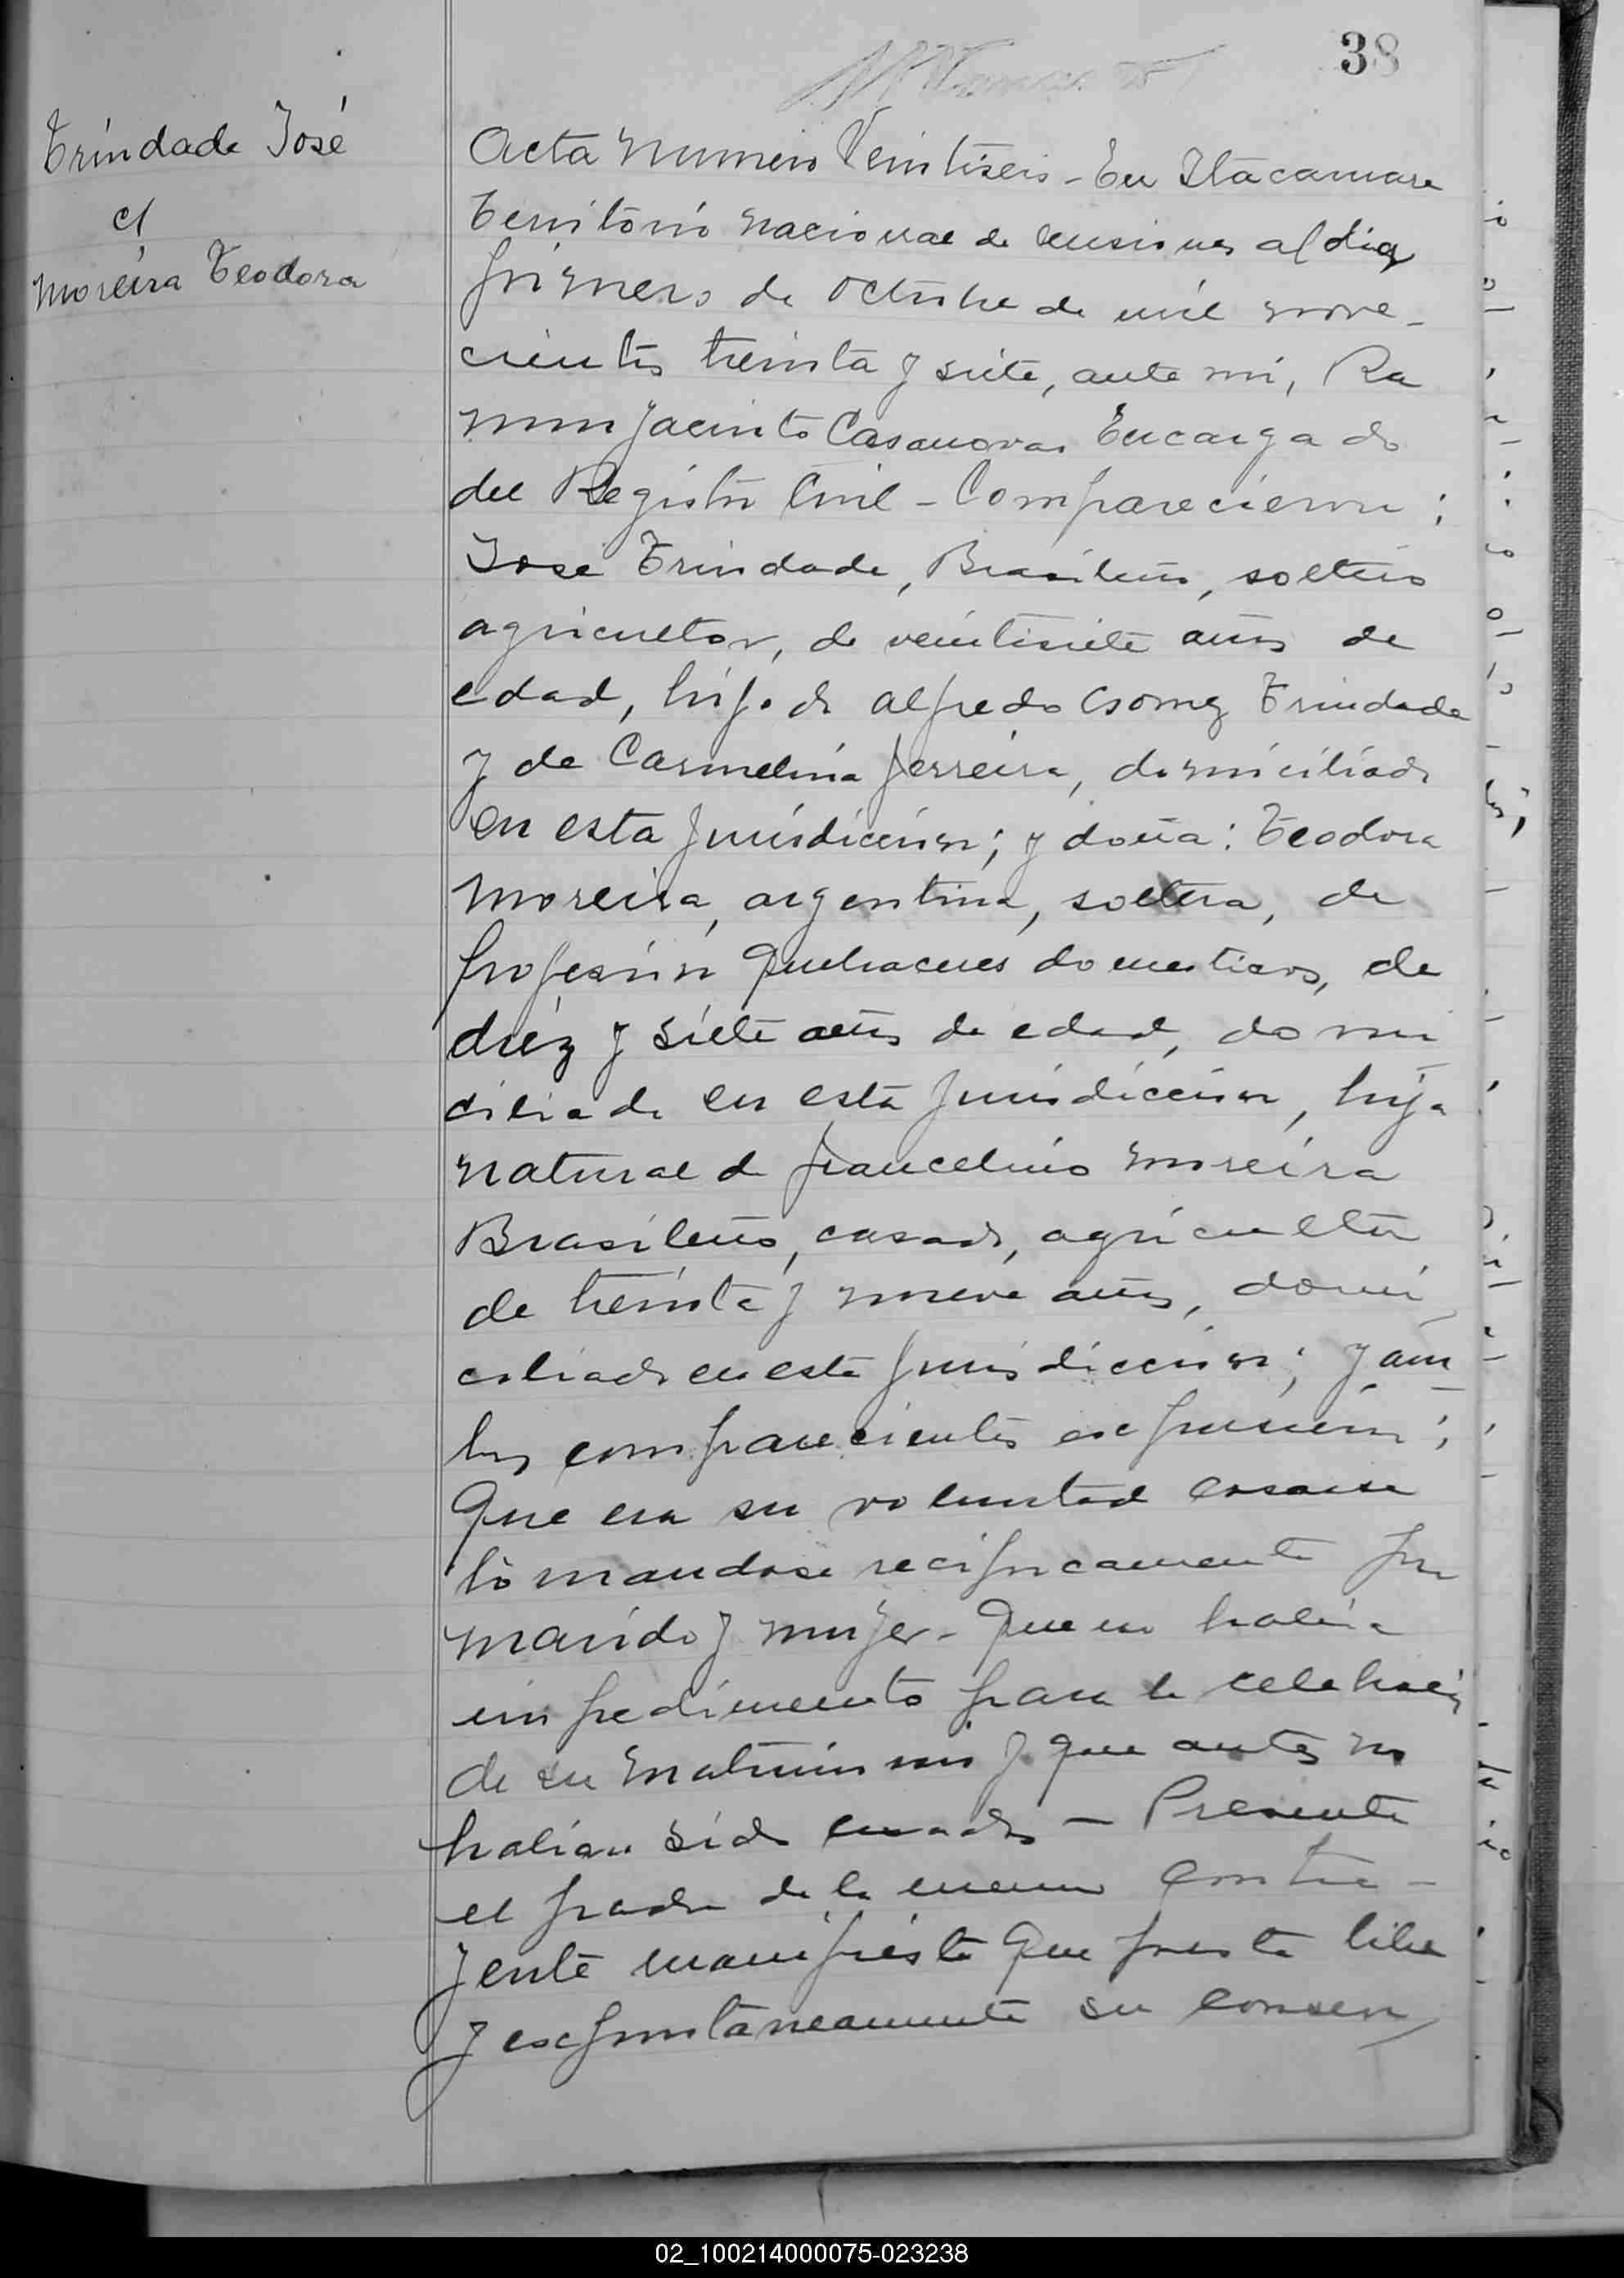 38
Trindade José
c/
Moreira Teodora
Acta Numero Veintiseis - En Itacaruare
Territorio Nacional de Misiones al dia
primero de Octubre de mil nove-
cientos treinta y siete, ante mi, Ra
mon Jacinto Casanovas Encargado
del Registro Civil - Comparecieron:
Jose Trindade, Brasileño, soltero
agricultor, de veintisiete años de
edad, hijo de Alfredo Gomez Trindade
y de Carmelina Ferreira, domiciliado
en esta Jurisdiccion; y doña: Teodora
Moreira, argentina, soltera, de
profesion quehaceres domesticos, de
diéz y siete años de edad, domi
ciliada en esta Jurisdiccion, hija
natural de Francelino Moreira
Brasileño, casado, agricultor
de treinta y nueve años, domi
ciliado en esta Jurisdiccion; y am
bos comparecientes expusieron:
Que era su voluntad casarse
tomandose reciprocamente por
marido y mujer - Que no habia
impedimento para la celebración
de su matrimonio y que antes no
habian sido casados - Presente
el padre de la menor contra-
yente manifiesta que presta libre
y expontaneamente su consen
02_100214000075-023238